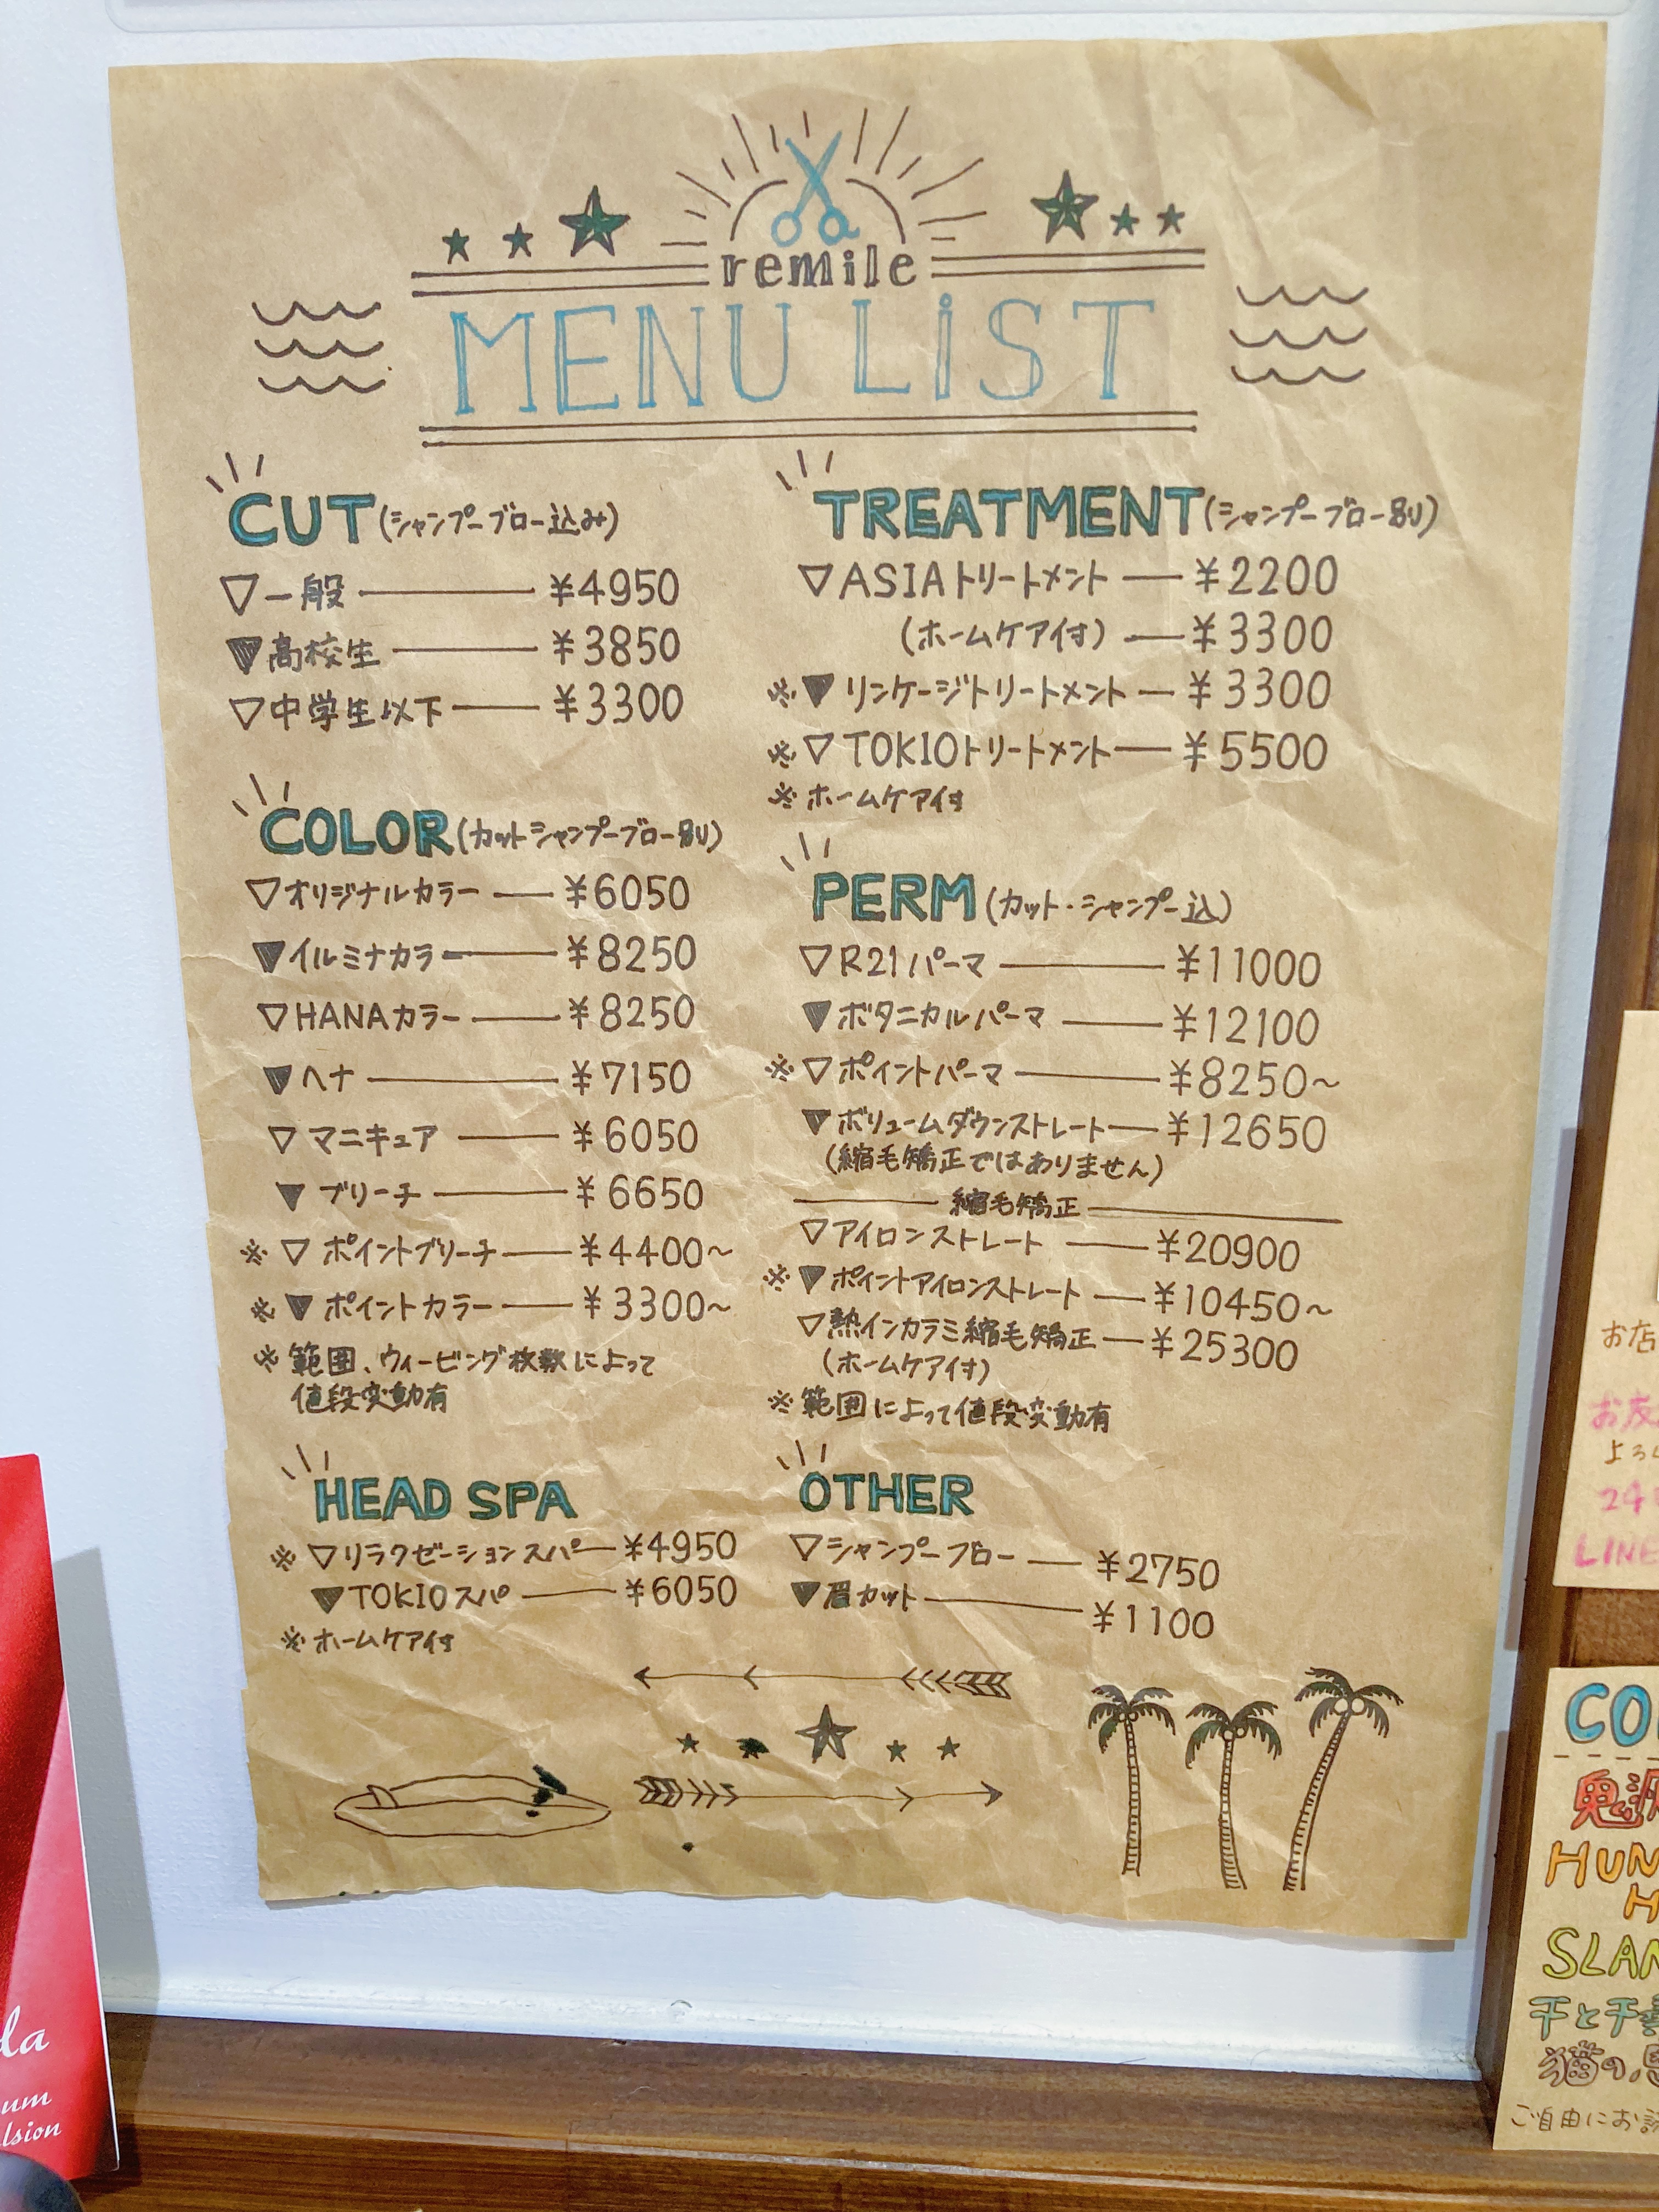 remile
MENU LIST
CUT(シャンプーブロー込み)
▽一般 ¥4950
▼高校生 ¥3850
▽中学生以下 ¥3300
COLOR(カットシャンプーブロー別)
▽オリジナルカラー ¥6050
▼イルミナカラー ¥8250
▽HANAカラー ¥8250
▼ヘナ ¥7150
▽マニキュア ¥6050
▼ブリーチ ¥6650
※▽ポイントブリーチ ¥4400~
※▼ポイントカラー ¥3300~
※範囲、ウィービング枚数によって
値段変動有
HEAD SPA
※▽リラクゼーションスパ ¥4950
▼TOKIOスパ ¥6050
※ホームケア付
TREATMENT(シャンプーブロー別)
▽ASIAトリートメント ¥2200
(ホームケア付) ¥3300
※▼リンケージトリートメント ¥3300
※▽TOKIOトリートメント ¥5500
※ホームケア付
PERM(カット・シャンプー込)
▽R21パーマ ¥11000
▼ボタニカルパーマ ¥12100
※▽ポイントパーマ ¥8250~
▼ボリュームダウンストレート ¥12650
(縮毛矯正ではありません)
縮毛矯正
▽アイロンストレート ¥20900
※▼ポイントアイロンストレート ¥10450~
▽熱インカラミ縮毛矯正 ¥25300
(ホームケア付)
※範囲によって値段変動有
OTHER
▽シャンプーブロー ¥2750
▼眉カット ¥1100
お店
お友
よろ
24
LINE
CO
HUN
H
SLAM
猫の
ご自由にお
la
um
lsion